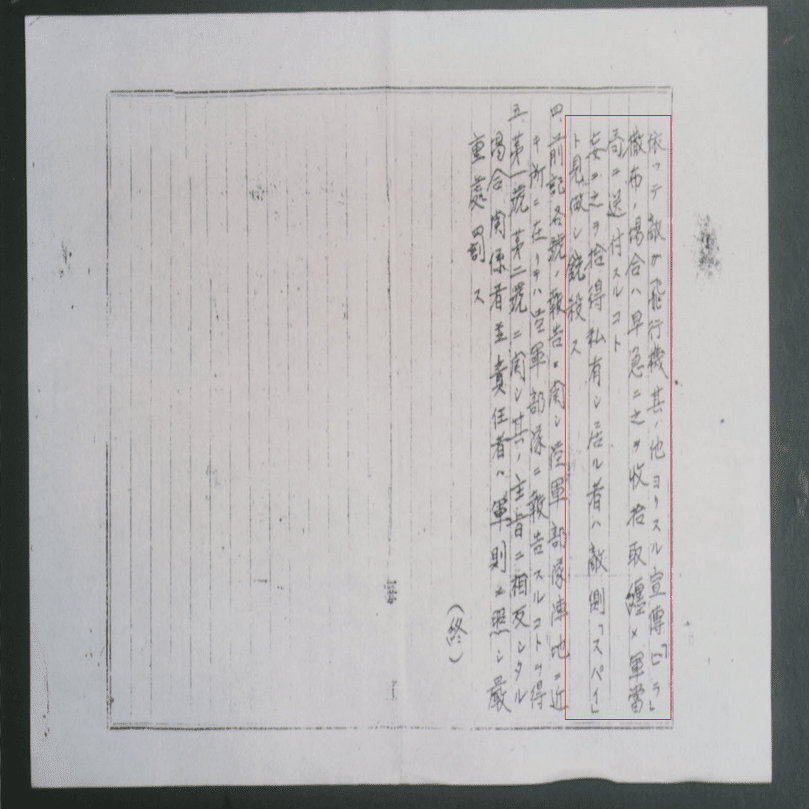 依ッテ敵カ飛行機其ノ他ヨリスル宣傳「ビラ」
撒布ノ場合ハ早急ニ之ヲ收拾取纏メ軍當
局ニ送付スルコト
妄ニ之ヲ拾得私有シ居ル者ハ敵側「スパイ」
ト見做シ銃殺ス
四、前記各號ノ報告ニ関シ陸軍部隊陣地ニ近
キ所ニ在リテハ陸軍部隊ニ報告スルコトヲ得
五、第一號第二號ニ関シ其ノ主旨ニ相反シタル
場合関係者並責任者ハ軍則ニ照シ嚴
重處罰ス
(終)